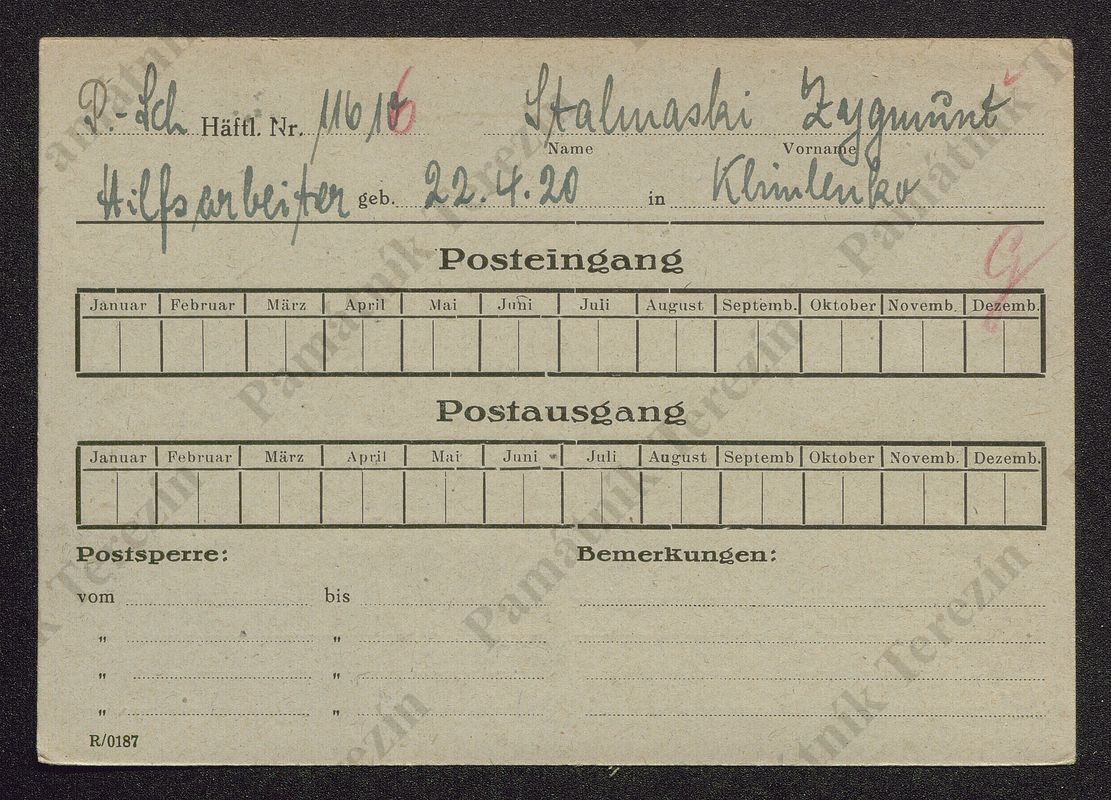 P.-Sch Häftl. Nr. 11616 Stalmaski Zygmunt
Name Vorname
Hilfsarbeiter geb. 22.4.20 in Klimlenko
Posteingang
Januar Februar März April Mai Juni Juli August Septemb. Oktober Novemb. Dezemb.
Postausgang
Januar Februar März April Mai Juni Juli August Septemb Oktober Novemb. Dezemb.
Postsperre: Bemerkungen:
vom bis
" "
" "
" "
R/0187
Památník Terezín